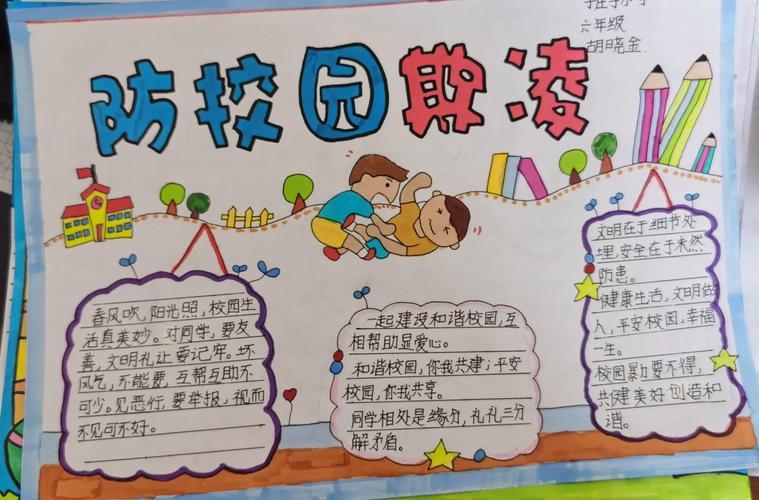 六年级
胡晓金
防校园欺凌
春风吹,阳光照,校园生
活真美妙。对同学,要友
善,文明礼让要记牢。坏
风气,不能要,互帮互助不
可少。见恶行,要举报,视而
不见可不好。
一起建设和谐校园,互
相帮助显爱心。
和谐校园,你我共建;平安
校园,你我共享。
同学相处是缘分,礼礼三分
解矛盾。
文明在于细节处
理,安全在于未然
防患。
健康生活,文明做
人,平安校园,幸福
一生。
校园暴力要不得,
共建美好创造和
谐。